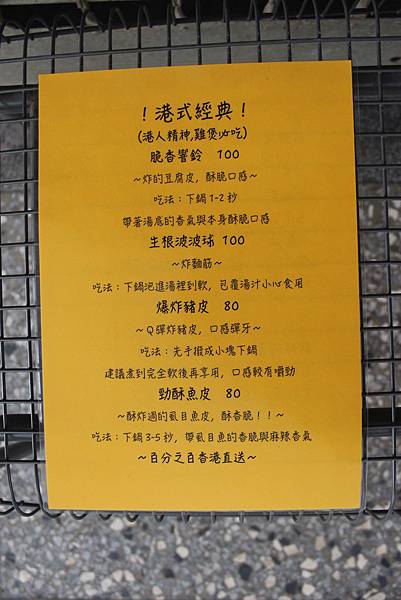 ！港式經典！
(港人精神,雞煲必吃)
脆香響鈴 100
~炸的豆腐皮，酥脆口感~
吃法：下鍋1-2秒
帶著湯底的香氣與本身酥脆口感
生根波波球 100
~炸麵筋~
吃法：下鍋泡進湯裡到軟，包覆湯汁小心食用
爆炸豬皮 80
~Q彈炸豬皮，口感彈牙~
吃法：先手撥成小塊下鍋
建議煮到完全軟後再享用，口感較有嚼勁
勁酥魚皮 80
~酥炸過的虱目魚皮，酥香脆！！~
吃法：下鍋3-5秒，帶虱目魚的香脆與麻辣香氣
~百分之百香港直送~